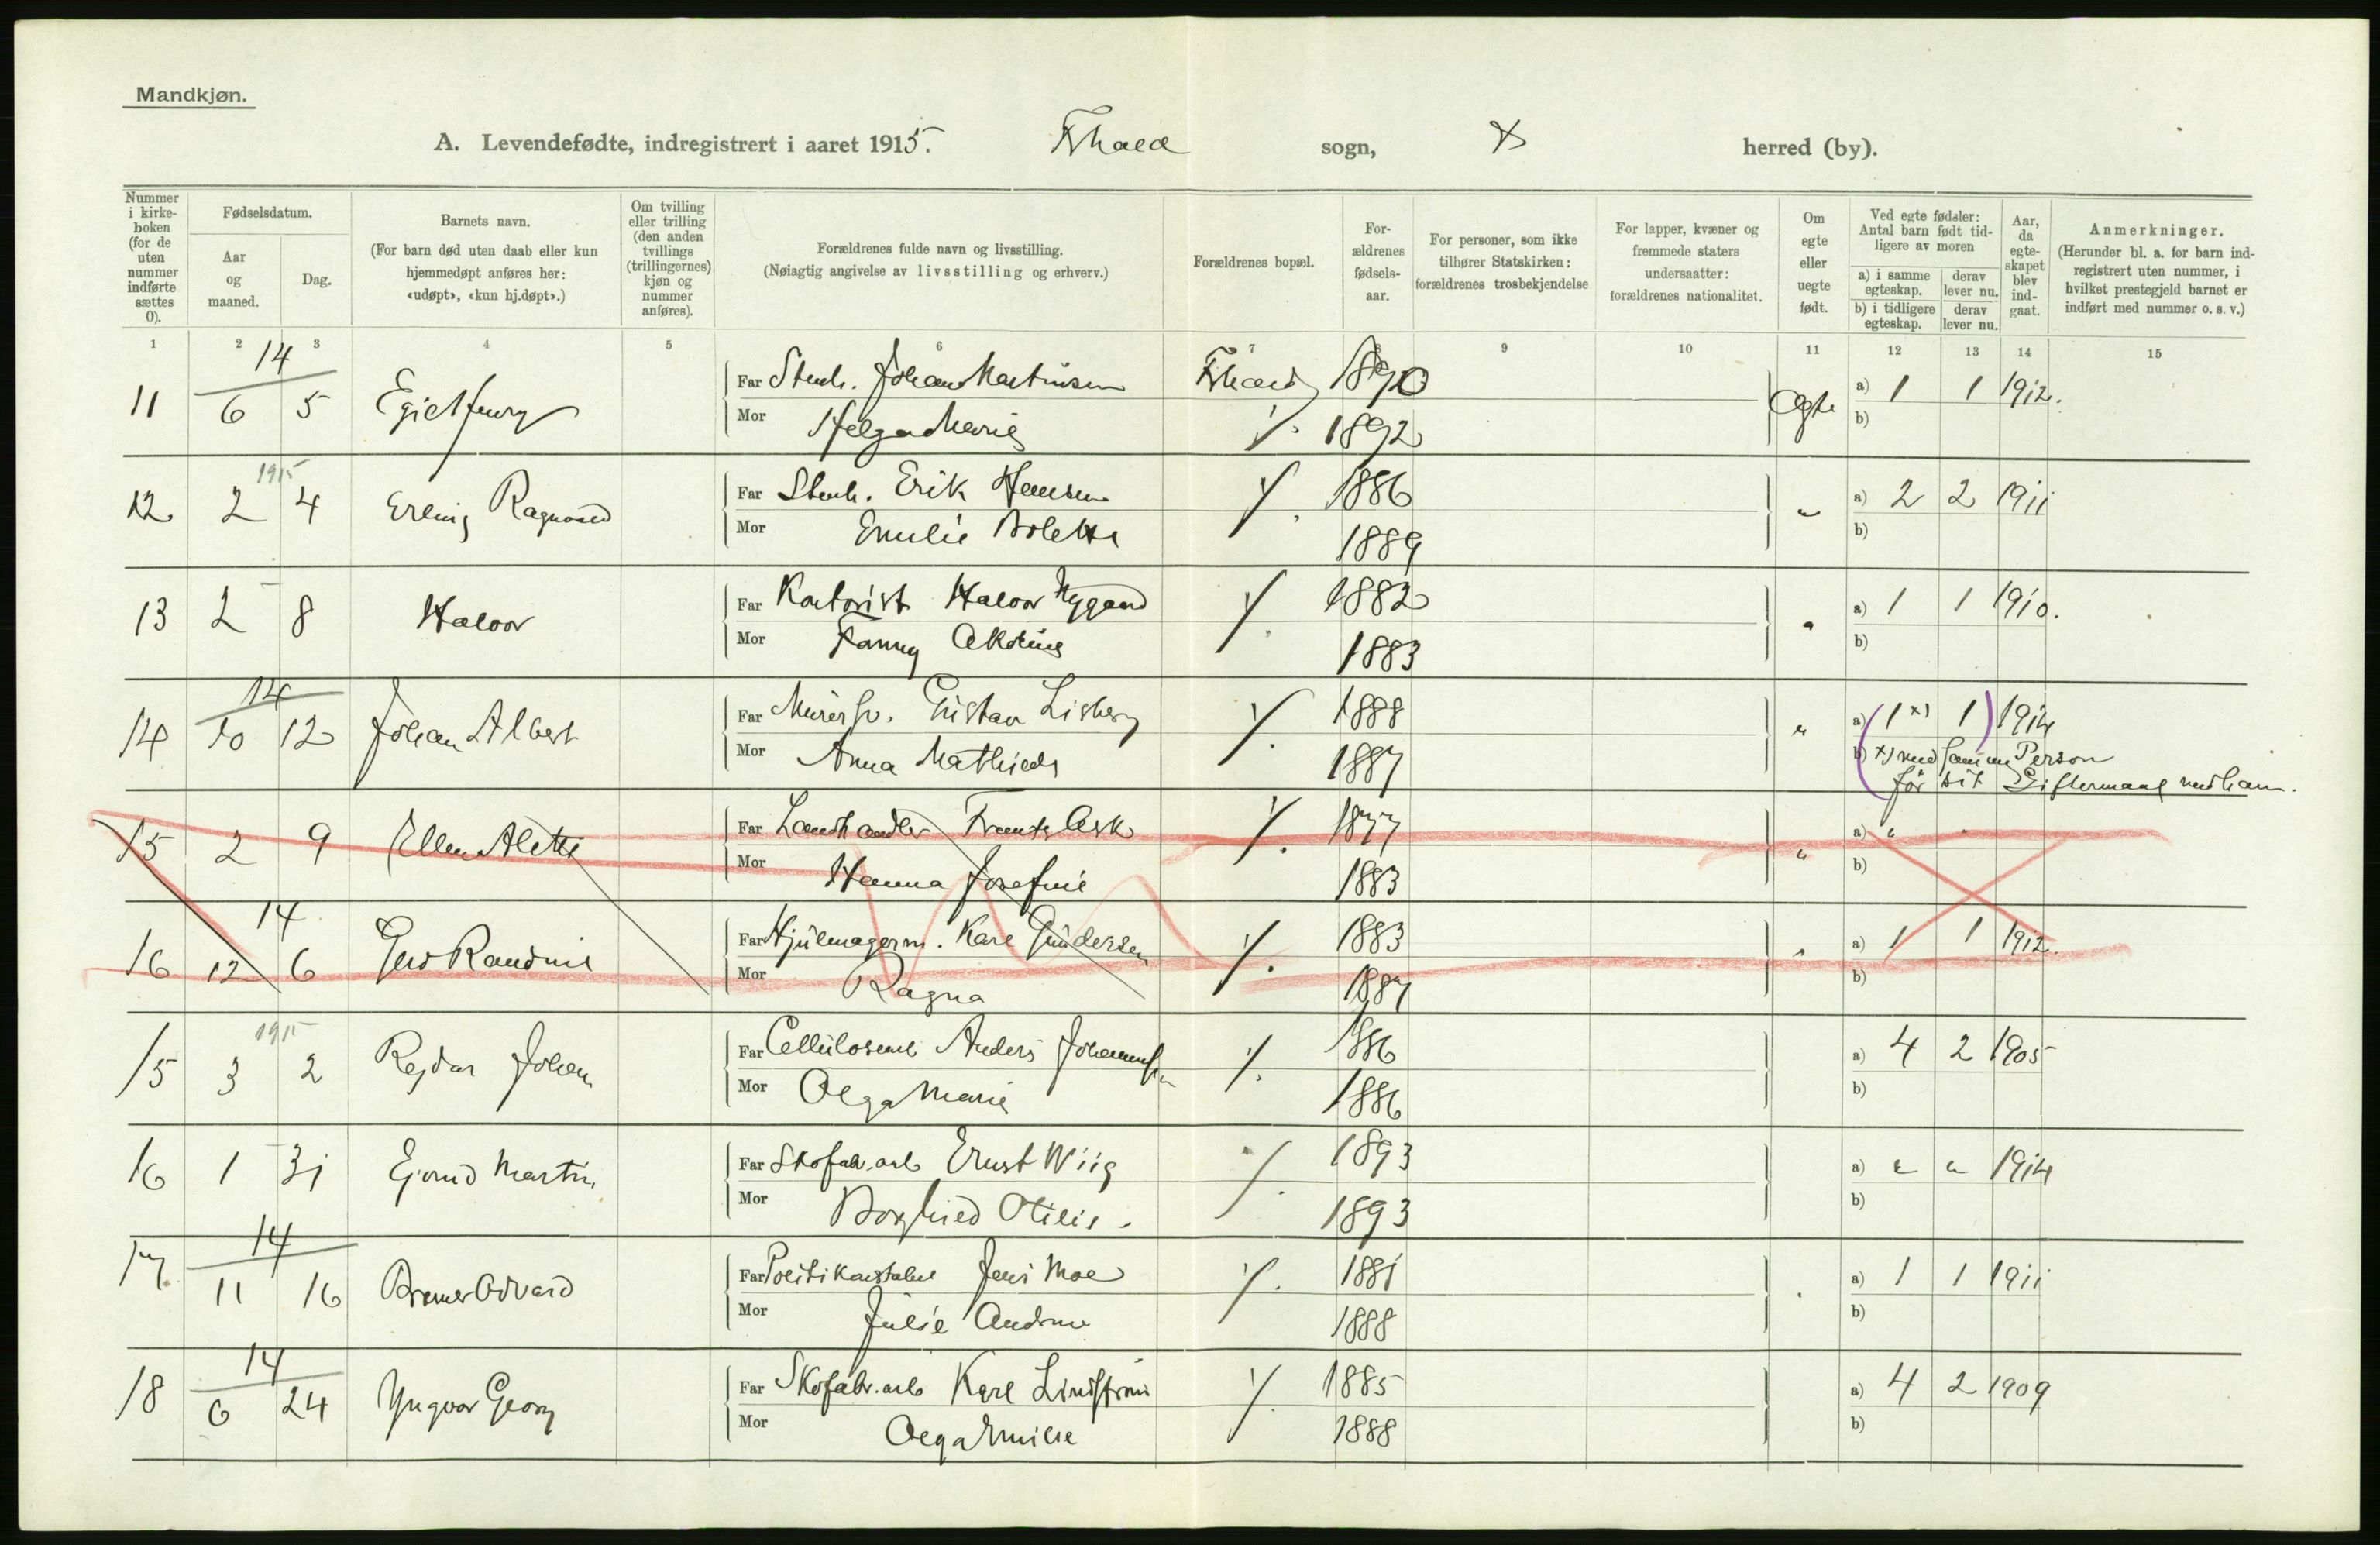 Mandkjøn.
A. Levendefødte, indregistrert i aaret 1915. Fhald sogn, herred (by).
Nummer i kirkeboken (for de uten nummer indførte sættes 0).
Fødselsdatum.
Aar og maaned.
Dag.
Barnets navn.
(For barn død uten daab eller kun hjemmedøpt anføres her: «udøpt», «kun hj.døpt».)
Om tvilling eller trilling (den anden tvillings (trillingernes) kjøn og nummer anføres).
Forældrenes fulde navn og livsstilling.
(Nøiagtig angivelse av livsstilling og erhverv.)
Forældrenes bopæl.
Forældrenes fødselsaar.
For personer, som ikke tilhører Statskirken: forældrenes trosbekjendelse
For lapper, kvæner og fremmede staters undersaatter: forældrenes nationalitet.
Om egte eller uegte født.
Ved egte fødsler: Antal barn født tidligere av moren
a) i samme egteskap. derav lever nu.
b) i tidligere egteskap. derav lever nu.
Aar, da egteskapet blev indgaat.
Anmerkninger.
(Herunder bl. a. for barn indregistrert uten nummer, i hvilket prestegjeld barnet er indført med nummer o. s. v.)
1 2 3 4 5 6 7 8 9 10 11 12 13 14 15
14
11 6 5 Far Johan Martinsen Fhald 1890 Egte a) 1 1 1912.
Mor Helga Marie 1892 b)
1915
12 2 4 Erling Ragnvald Far Erik Hansen 1886 " a) 2 2 1911
Mor Emilie 1889 b)
13 2 8 Halvor Far Kontorist Halvor Nygaard 1882 " a) 1 1 1910.
Mor Fanny 1883 b)
14
14 10 12 Johan Albert Far Murersv. Gustav Lisberg 1888 " a) (1 x) 1) 1914
Mor Anna Mathilde 1887 b) x) med samme Person
før sit Giftermaal med ham.
15 2 9 Ellen Alette Far Landhandler Frants Ask 1877 " a) "
Mor Hanna Josefine 1883 b)
14
16 12 6 Gerd Randine Far Hjulmagerm. Karl Gundersen 1883 " a) 1 1 1912.
Mor Ragna 1887 b)
1915
15 3 2 Rejdar Johan Far Cellulosearb Anders Johannessen 1886 a) 4 2 1905
Mor Olga Marie 1886 b)
16 1 31 Ejvind Martin Far Skofabr.arb Ernst Wiig 1893 a) " " 1914
Mor Borghild Otilie 1893 b)
14
17 11 16 Far Politikonstabel Jens Moe 1881 a) 1 1 1911
Mor Julie Andrea 1888 b)
14
18 6 24 Yngvar Georg Far Skofabr.arb Karl Lindstrøm 1885 a) 4 2 1909
Mor Olga Emilie 1888 b)